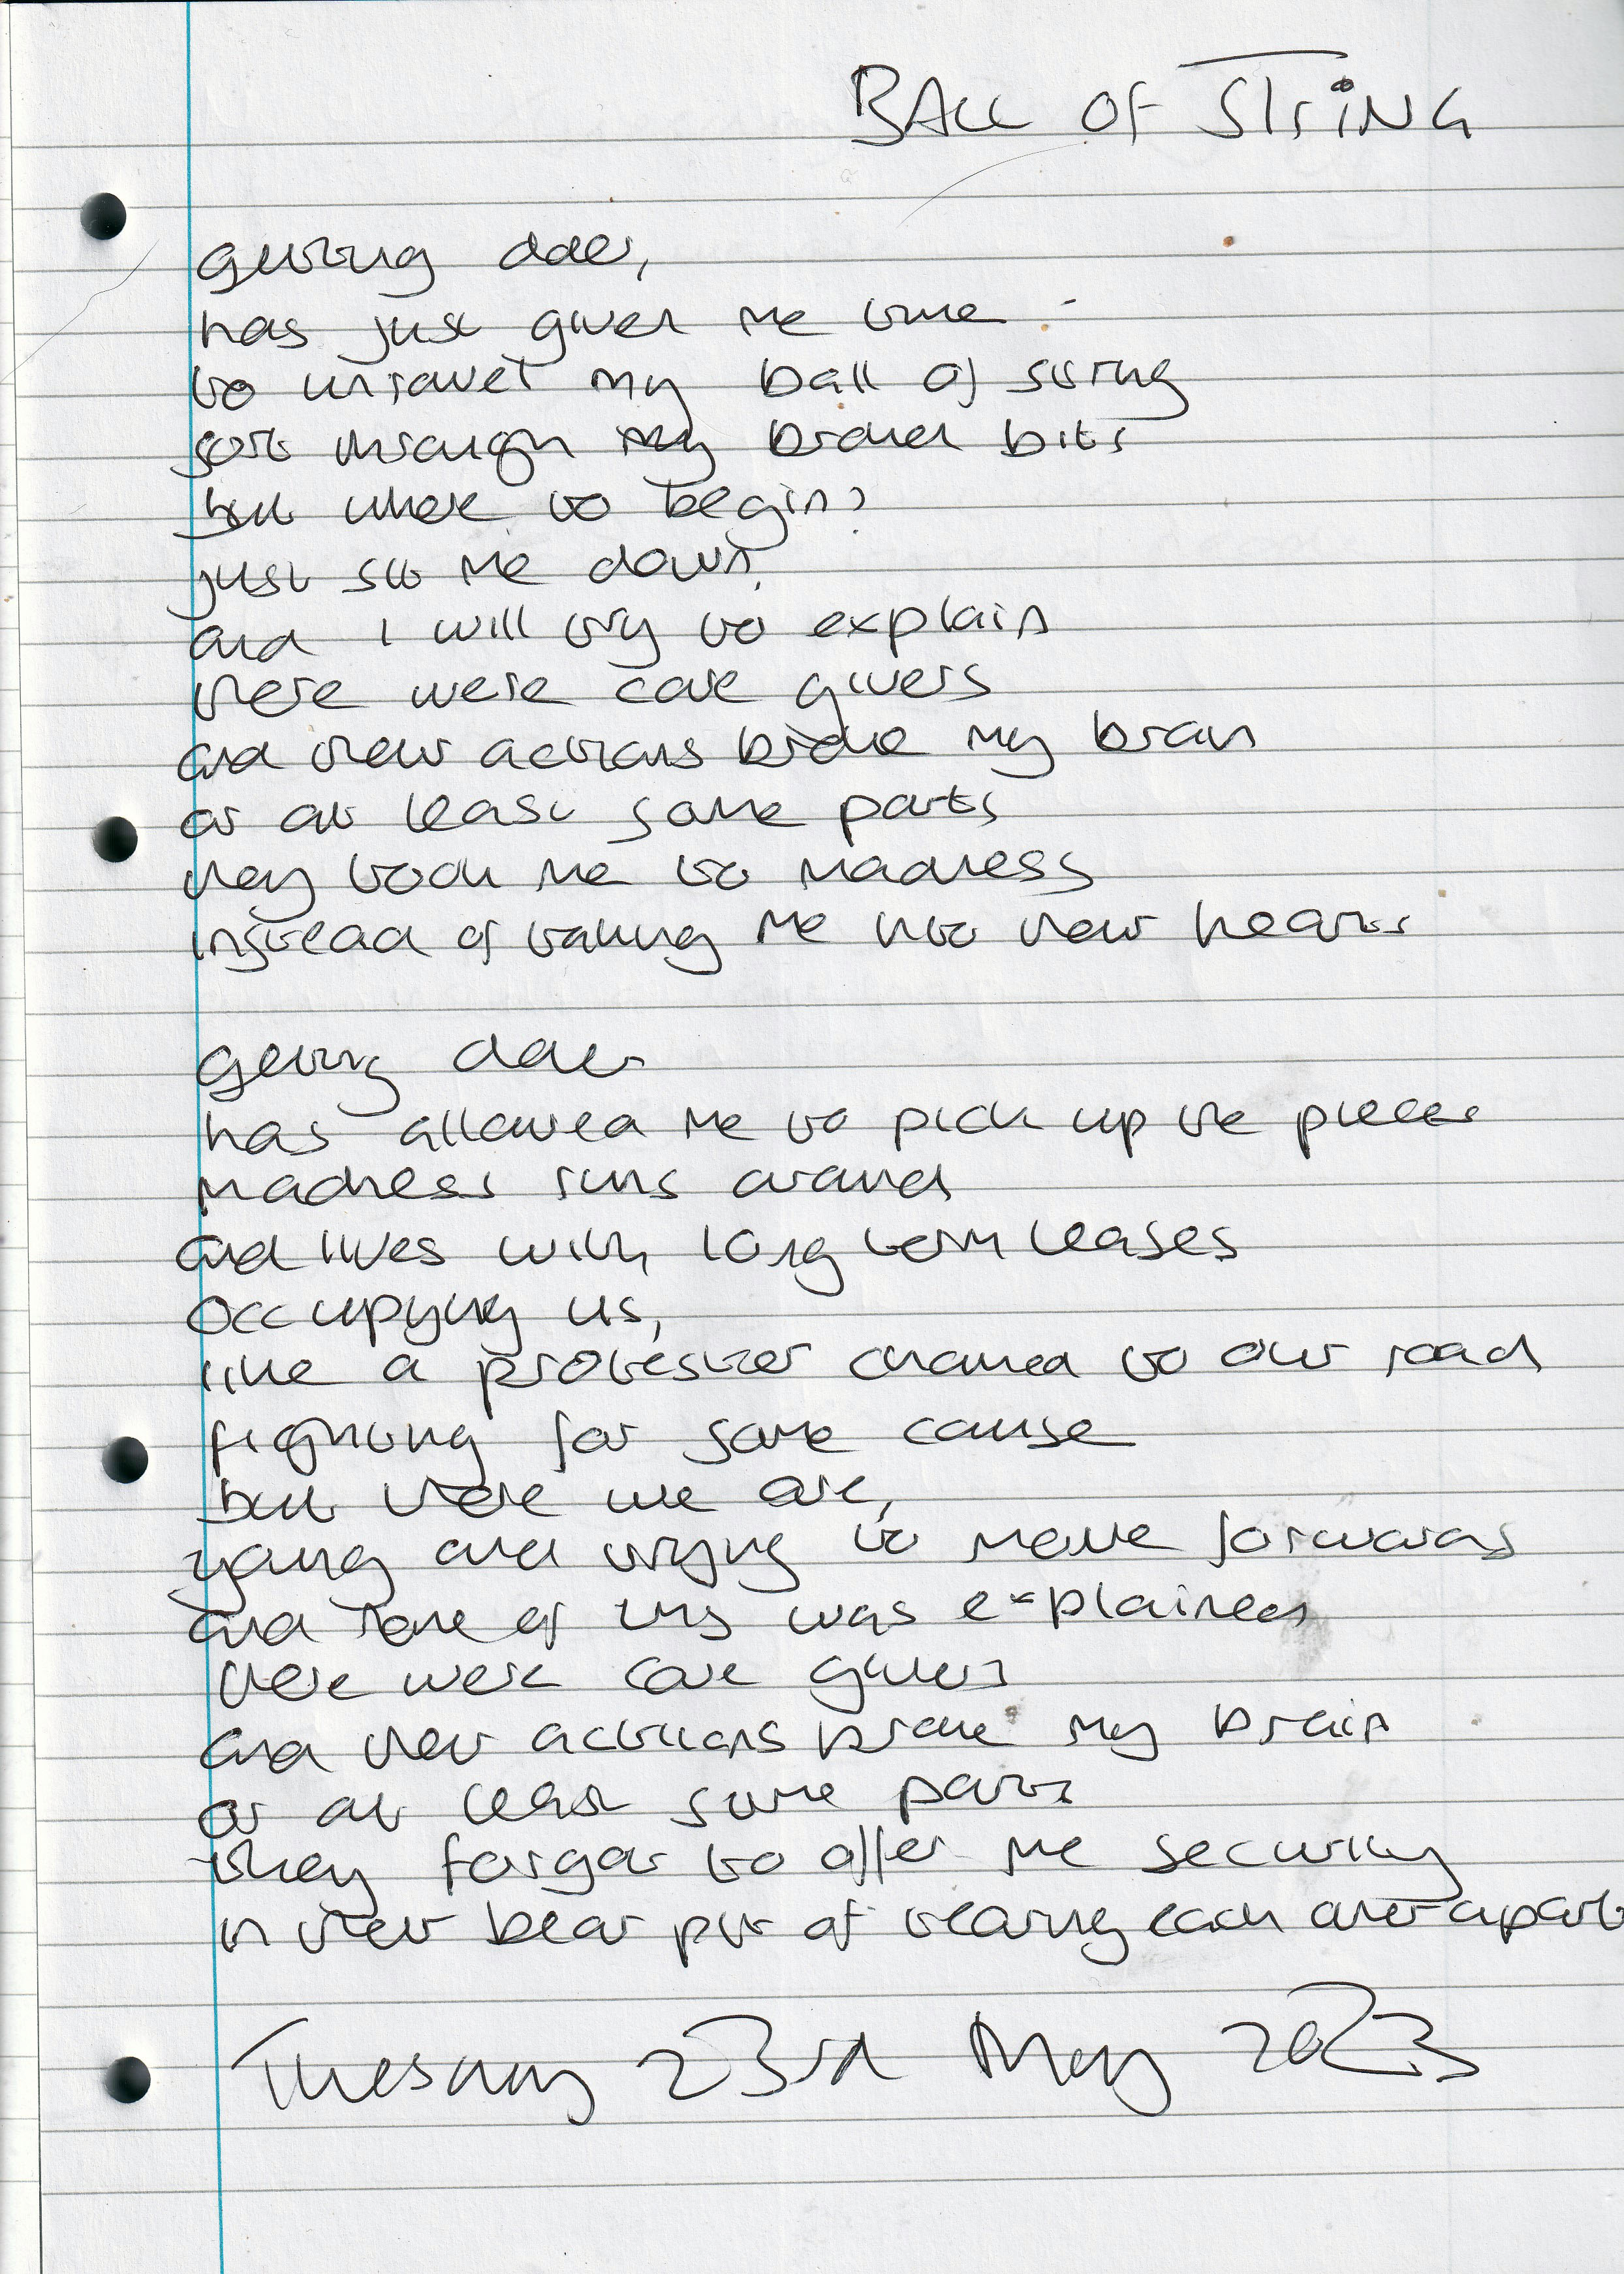 BALL OF STRING
getting older,
has just given me time
to unravel my ball of string
sort through my broken bits
but where to begin?
just sit me down,
and I will try to explain
there were care givers
and their actions broke my brain
or at least some parts
they took me to madness
instead of taking me into their hearts
getting older
has allowed me to pick up the pieces
madness runs around
and lives with long term leases
occupying us,
like a protester chained to our road
fighting for some cause
but there we are,
young and trying to move forwards
and none of this was explained
there were care givers
and their actions broke my brain
or at least some parts
they forgot to offer me security
in their bear pit of tearing each other apart
Tuesday 23rd May 2023